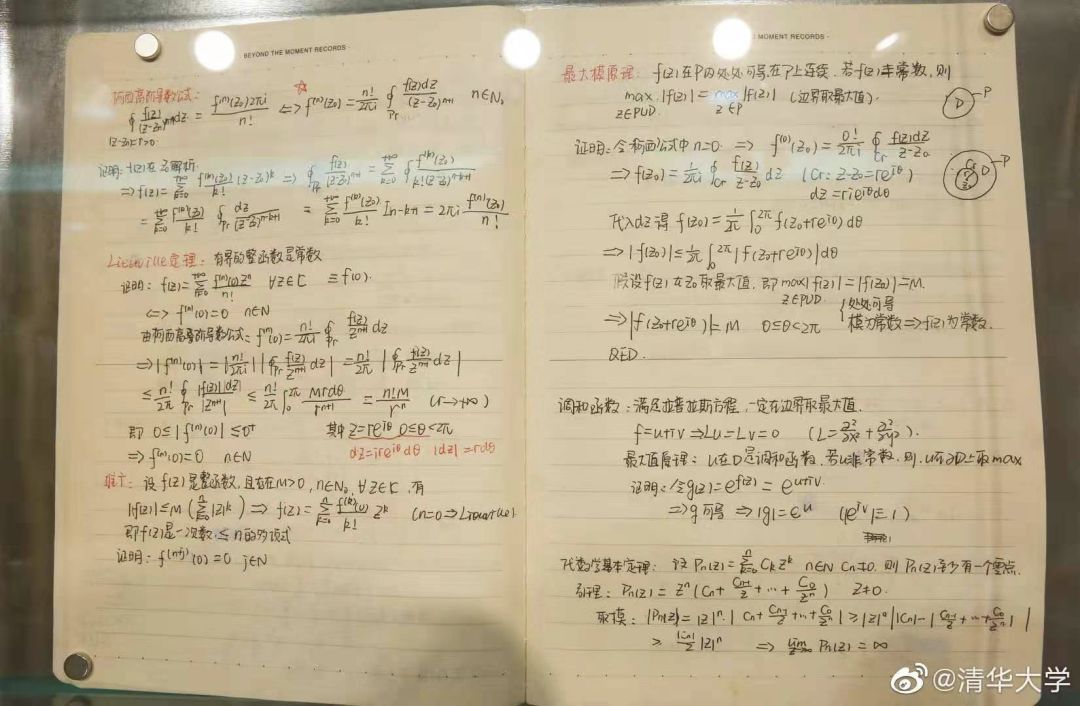 BEYOND THE MOMENT RECORDS
柯西高阶导数公式: ☆
∮ f(z)/(z-z₀)ⁿ⁺¹ dz = f⁽ⁿ⁾(z₀)2πi / n! ⇔ f⁽ⁿ⁾(z₀) = n!/2πi ∮_Pr f(z)dz/(z-z₀)ⁿ⁺¹ n∈N₀
|z-z₀|=r>0
证明: f(z)在z₀解析
⇒ f(z) = Σ_{k=0}^{+∞} f⁽ᵏ⁾(z₀)/k! (z-z₀)ᵏ ⇒ ∮_Pr f(z)/(z-z₀)ⁿ⁺¹ = Σ_{k=0}^{+∞} ∮ f⁽ᵏ⁾(z₀)/k!(z-z₀)ⁿ⁻ᵏ⁺¹
= Σ_{k=0}^{+∞} f⁽ᵏ⁾(z₀)/k! ∮_Pr dz/(z-z₀)ⁿ⁻ᵏ⁺¹ = Σ_{k=0}^{+∞} f⁽ᵏ⁾(z₀)/k! I_{n-k+1} = 2πi f⁽ⁿ⁾(z₀)/n!
Liouville定理: 有界的整函数是常数
证明: f(z) = Σ_{n=0}^{+∞} f⁽ⁿ⁾(0)zⁿ/n! ∀z∈C ≡ f(0).
⇔ f⁽ⁿ⁾(0)=0 n∈N
由柯西高阶导数公式: f⁽ⁿ⁾(0) = n!/2πi ∮_Pr f(z)/zⁿ⁺¹ dz
⇒ |f⁽ⁿ⁾(0)| = |n!/2πi| |∮_Pr f(z)/zⁿ⁺¹ dz| = n!/2π |∮_Pr f(z)/zⁿ⁺¹ dz|
≤ n!/2π ∮_Pr |f(z)||dz|/|zⁿ⁺¹| ≤ n!/2π ∫₀^{2π} Mrdθ/rⁿ⁺¹ = n!M/rⁿ (r→+∞)
即 0≤|f⁽ⁿ⁾(0)|≤0⁺ 其中 z=re^{iθ} 0≤θ<2π
⇒ f⁽ⁿ⁾(0)=0 n∈N dz=ire^{iθ}dθ |dz|=rdθ
推广: 设f(z)是整函数, 且存在M>0, n∈N₀, ∀z∈C, 有
|f(z)|≤M(Σ_{k=0}^{n}|z|ᵏ) ⇒ f(z) = Σ_{k=0}^{n} f⁽ᵏ⁾(0)/k! zᵏ (n=0⇒Liouville)
即f(z)是一次数≤n的多项式
证明: f⁽ⁿ⁺ʲ⁾(0)=0 j∈N
MOMENT RECORDS
最大模原理: f(z)在P内处处可导,在P上连续. 若f(z)非常数, 则
max_{z∈P∪D} |f(z)| = max_{z∈P} |f(z)| (边界取最大值).
D P
证明: 令柯西公式中n=0 ⇒ f⁽⁰⁾(z₀) = 0!/2πi ∮_Cr f(z)dz/z-z₀
⇒ f(z₀) = 1/2πi ∮_Cr f(z)/z-z₀ dz (Cr: z-z₀=re^{iθ})
dz=rie^{iθ}dθ
Cr D P
z₀
代入dz得 f(z₀) = 1/2π ∫₀^{2π} f(z₀+re^{iθ})dθ
⇒ |f(z₀)| ≤ 1/2π ∫₀^{2π} |f(z₀+re^{iθ})|dθ
假设f(z)在z₀取最大值, 即 max_{z∈P∪D}|f(z)| = |f(z₀)| = M.
⇒ |f(z₀+re^{iθ})| = M 0≤θ<2π { 处处可导
模为常数 ⇒ f(z)为常数.
QED.
调和函数: 满足拉普拉斯方程, 一定在边界取最大值.
f=u+iv ⇒ Lu=Lv=0 (L=∂²/∂x²+∂²/∂y²).
最大值原理: u在D是调和函数, 若u非常数, 则, u在∂D上取max
证明: 令g(z)=e^{f(z)}=e^{u+iv}
⇒ g可导 ⇒ |g|=e^u (|e^{iv}|=1)
代数学基本定理: 设Pn(z)=Σ_{k=0}^{n} C_k zᵏ n∈N Cn≠0. 则Pn(z)至少有一个零点.
引理: Pn(z) = zⁿ(Cn+Cn-1/z+…+C₀/zⁿ) z≠0.
取模: |Pn(z)| = |z|ⁿ·|Cn+Cn-1/z+…+C₀/zⁿ| ≥ |z|ⁿ||Cn|-|Cn-1/z+…+C₀/zⁿ||
≥ |Cn|/2 |z|ⁿ ⇒ lim_{z→∞} Pn(z)=∞
@清华大学